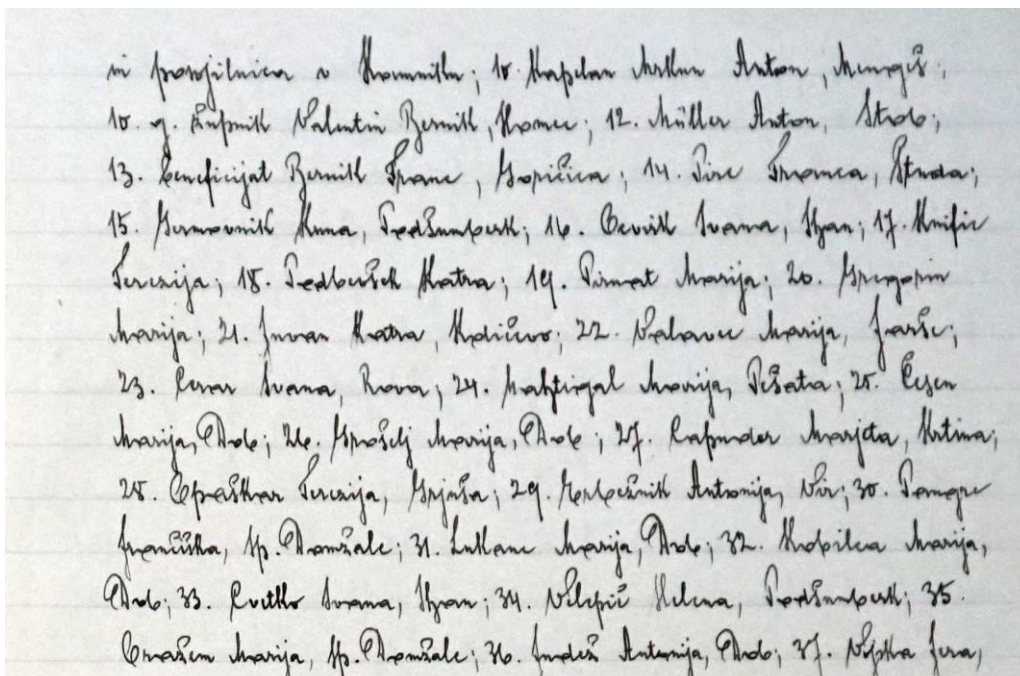 in posojilnica v Kamniku; 10. Kaplan Mrkun Anton, Mengeš;
10. g. župnik Valentin Bernik, Homec; 12. Müller Anton, Stob;
13. beneficijat Bernik Franc, Goričica; 14. Pirc Franca, Študa;
15. Germovnik Anna, Podšumberk; 16. Cevirk Ivana, Ihan; 17. Knific
Terezija; 18. Podboršek Katra; 19. Pirnat Marija; 20. Gregorin
Marija; 21. Juvan Katra, Količevo; 22. Valavec Marija, Jarše;
23. Cerar Ivana, Rova; 24. Nahtigal Marija, Pešata; 25. Česen
Marija, Dob; 26. Grošelj Marija, Dob; 27. Capuder Marjeta, Krtina;
28. Opeškar Terezija, Grjuša; 29. Erbežnik Antonija, Vir; 30.
Frančiška, Sp. Domžale; 31. Lukanc Marija, Dob; 32. Kobilca Marija,
Dob; 33. Cvetko Ivana, Ihan; 34. Velepič Helena, Podšumberk; 35.
Oražem Marija, Sp. Domžale; 36. Judež Antonija, Dob; 37. Jera,